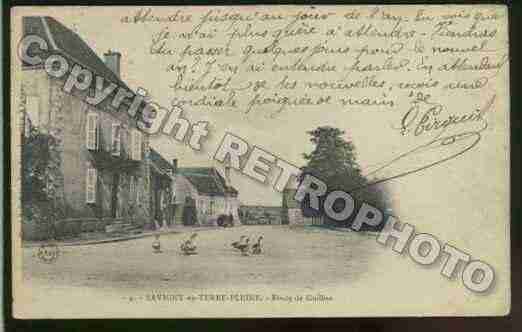 attendre jusqu'au jour de l'an. Tu vois que
je n'ai plus guère à attendre. Viendras
tu passer quelques jours pour le nouvel
an? J'en ai entendu parler. En attendant
bientôt de tes nouvelles, reçois une
cordiale poignée de main de
COPYRIGHT RETROPHOTO.COM
9. - SAVIGNY-en-TERRE-PLEINE. - Route de Guillon